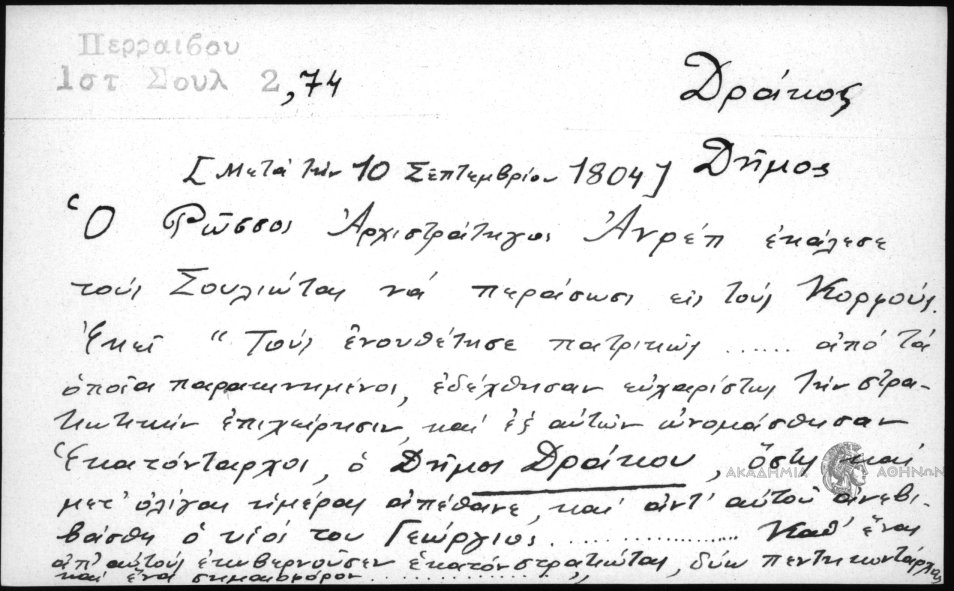 Περραιβου
Ιστ Σουλ 2,74
Δράκος
Δῆμος
[Μετά τήν 10 Σεπτεμβρίου 1804]
Ὁ Ρῶσσος Ἀρχιστράτηγος Ἀνρέπ ἐκάλεσε
τούς Σουλιώτας νά περάσωσι εἰς τούς Κορφούς.
Ἐκεῖ "Τούς ἐνουθέτησε πατρικῶς ...... ἀπό τά
ὁποῖα παρακινημένοι, ἐδέχθησαν εὐχαρίστως τήν στρα-
τιωτικήν ἐπιχείρησιν, καί ἐξ αὐτῶν ὠνομάσθησαν
Ἑκατόνταρχοι, ὁ Δῆμος Δράκου, ὅστις καί
μετ' ὀλίγας ἡμέρας ἀπέθανε, καί ἀντ' αὐτοῦ ἀνεβι-
βάσθη ὁ υἱός του Γεώργιος .................. Καθ' ἕνας
ἀπ' αὐτούς ἐκυβερνοῦσεν ἑκατόν στρατιώτας, δύω πεντηκοντάρχας
καί ἕνα σημαιοφόρον ..................."
ΑΚΑΔΗΜΙΑ ΑΘΗΝΩΝ